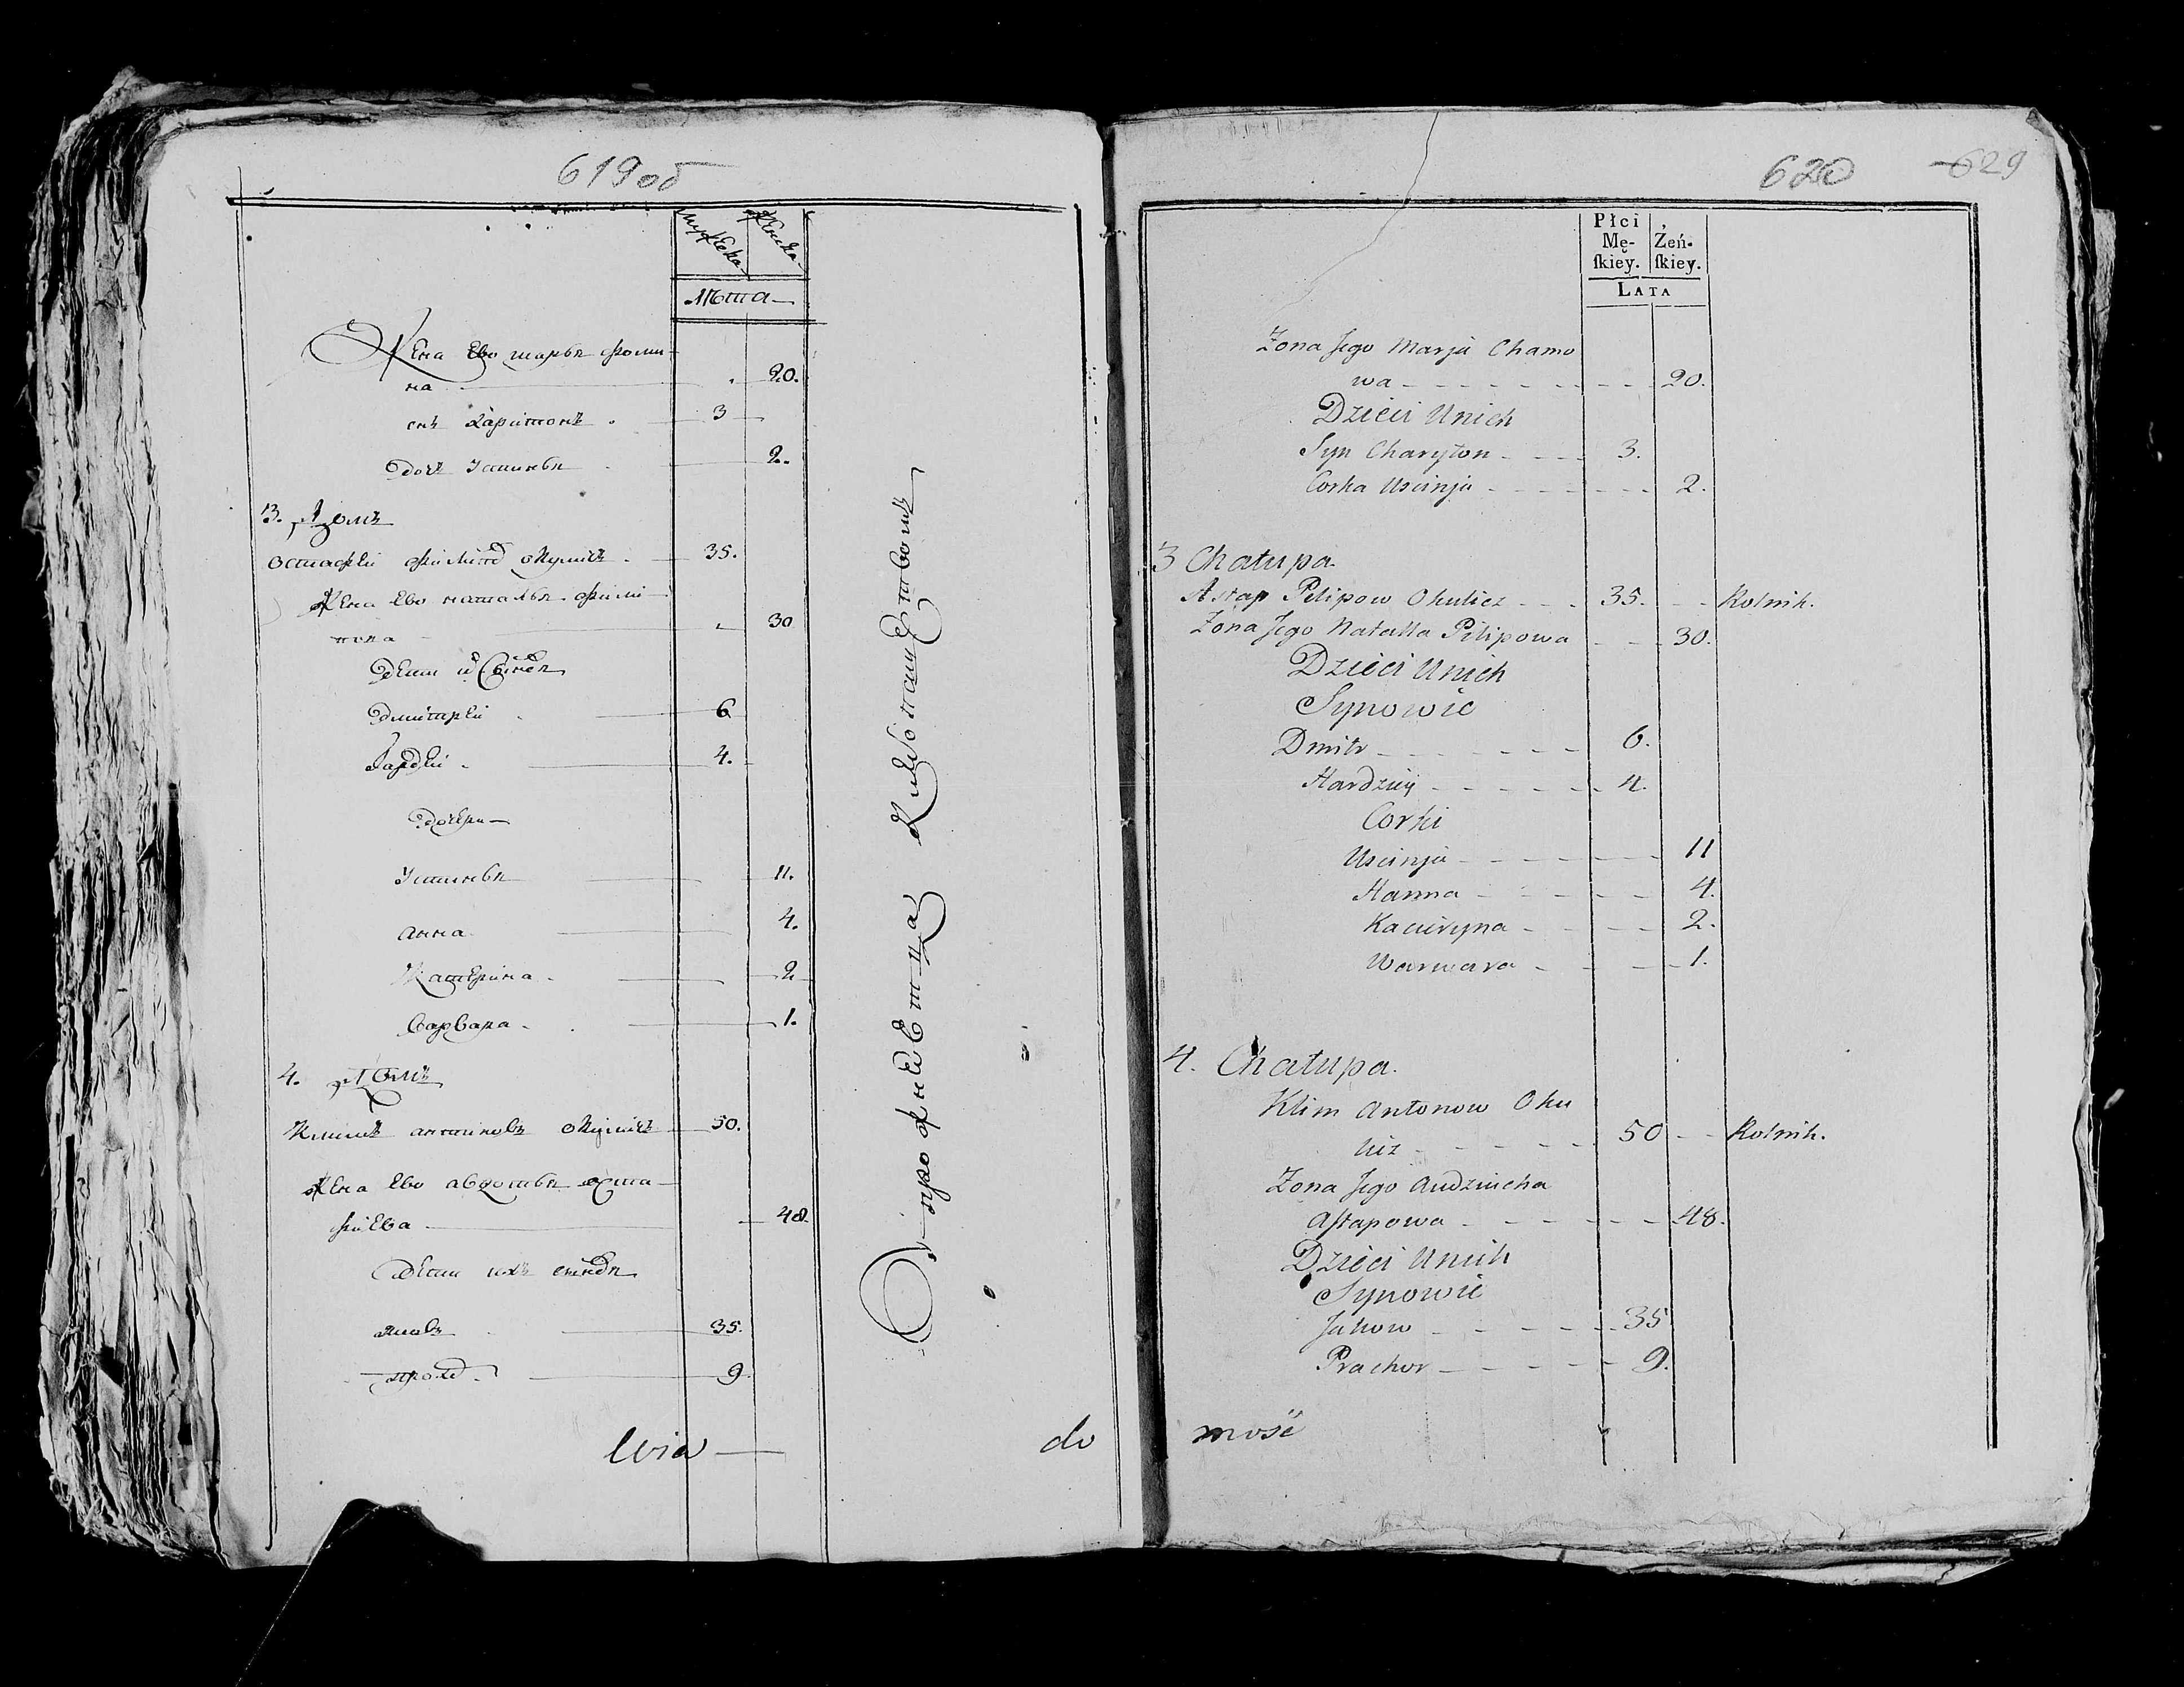 619 об
мужеска
женска
Лѣта
Жена Ево марья ѳоми
на 20.
снъ Харитонъ 3
дочь Устинья 2.
3. Домъ
Остафеи Филипов Окуличъ 35.
Жена Ево наталья Фили
пова 30
Дети
Дмитреи 6
Гардеи 4.
Дочери
Устинья 11.
Анна 4.
Катерина 2
Варвара 1.
4. Домъ
Климъ антоновъ Окуличъ 50.
Жена Ево авдотья Оста
фиева 48.
Дети ихъ
Яковъ 35.
прохор 9
wia
do
620 629
Płci
Mę-
ſkiey.
Żeń-
ſkiey.
LATA
Zona Jego Marja Chamo
wa 20.
Dzieci Unich
Syn Charyton 3.
Corka Uscinja 2.
3 Chatupa.
Astap Pilipow Okulicz 35. Rolnik.
Zona Jego Natalla Pilipowa 30.
Dzieci Unich
Synowie
Dmitr 6.
Hardziey 4.
Corki
Uscinja 11
Hanna 4.
Kacieryna 2.
Warwara 1.
4. Chatupa.
Klim Antonow Oku
licz 50 Rolnik.
Zona Jego Audziucha
Aſtapowa 48.
Dzieci Unich
Synowie
Jakow 35
Prachor 9.
mość